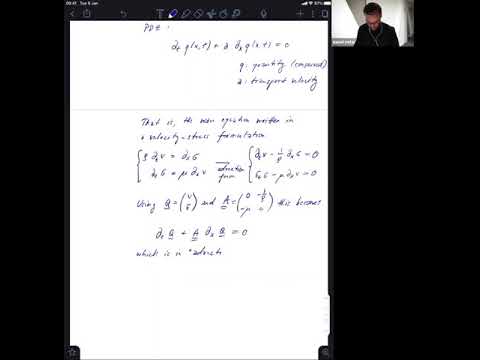 09:41 Tue 5 Jan
57%
PDE:
∂ₜ q(x,t) + a ∂ₓ q(x,t) = 0
q : quantity (conserved)
a : transport velocity
That is, the wave equation written in
a velocity-stress formulation
{ ρ ∂ₜ v = ∂ₓ σ
∂ₜ σ = μ ∂ₓ v
advection
form
{ ∂ₜ v − 1/ρ ∂ₓ σ = 0
∂ₜ σ − μ ∂ₓ v = 0
Using Q = (v σ) and A = (0 −1/ρ −μ 0) this becomes
∂ₜ Q + A ∂ₓ Q = 0
which is in "advecti